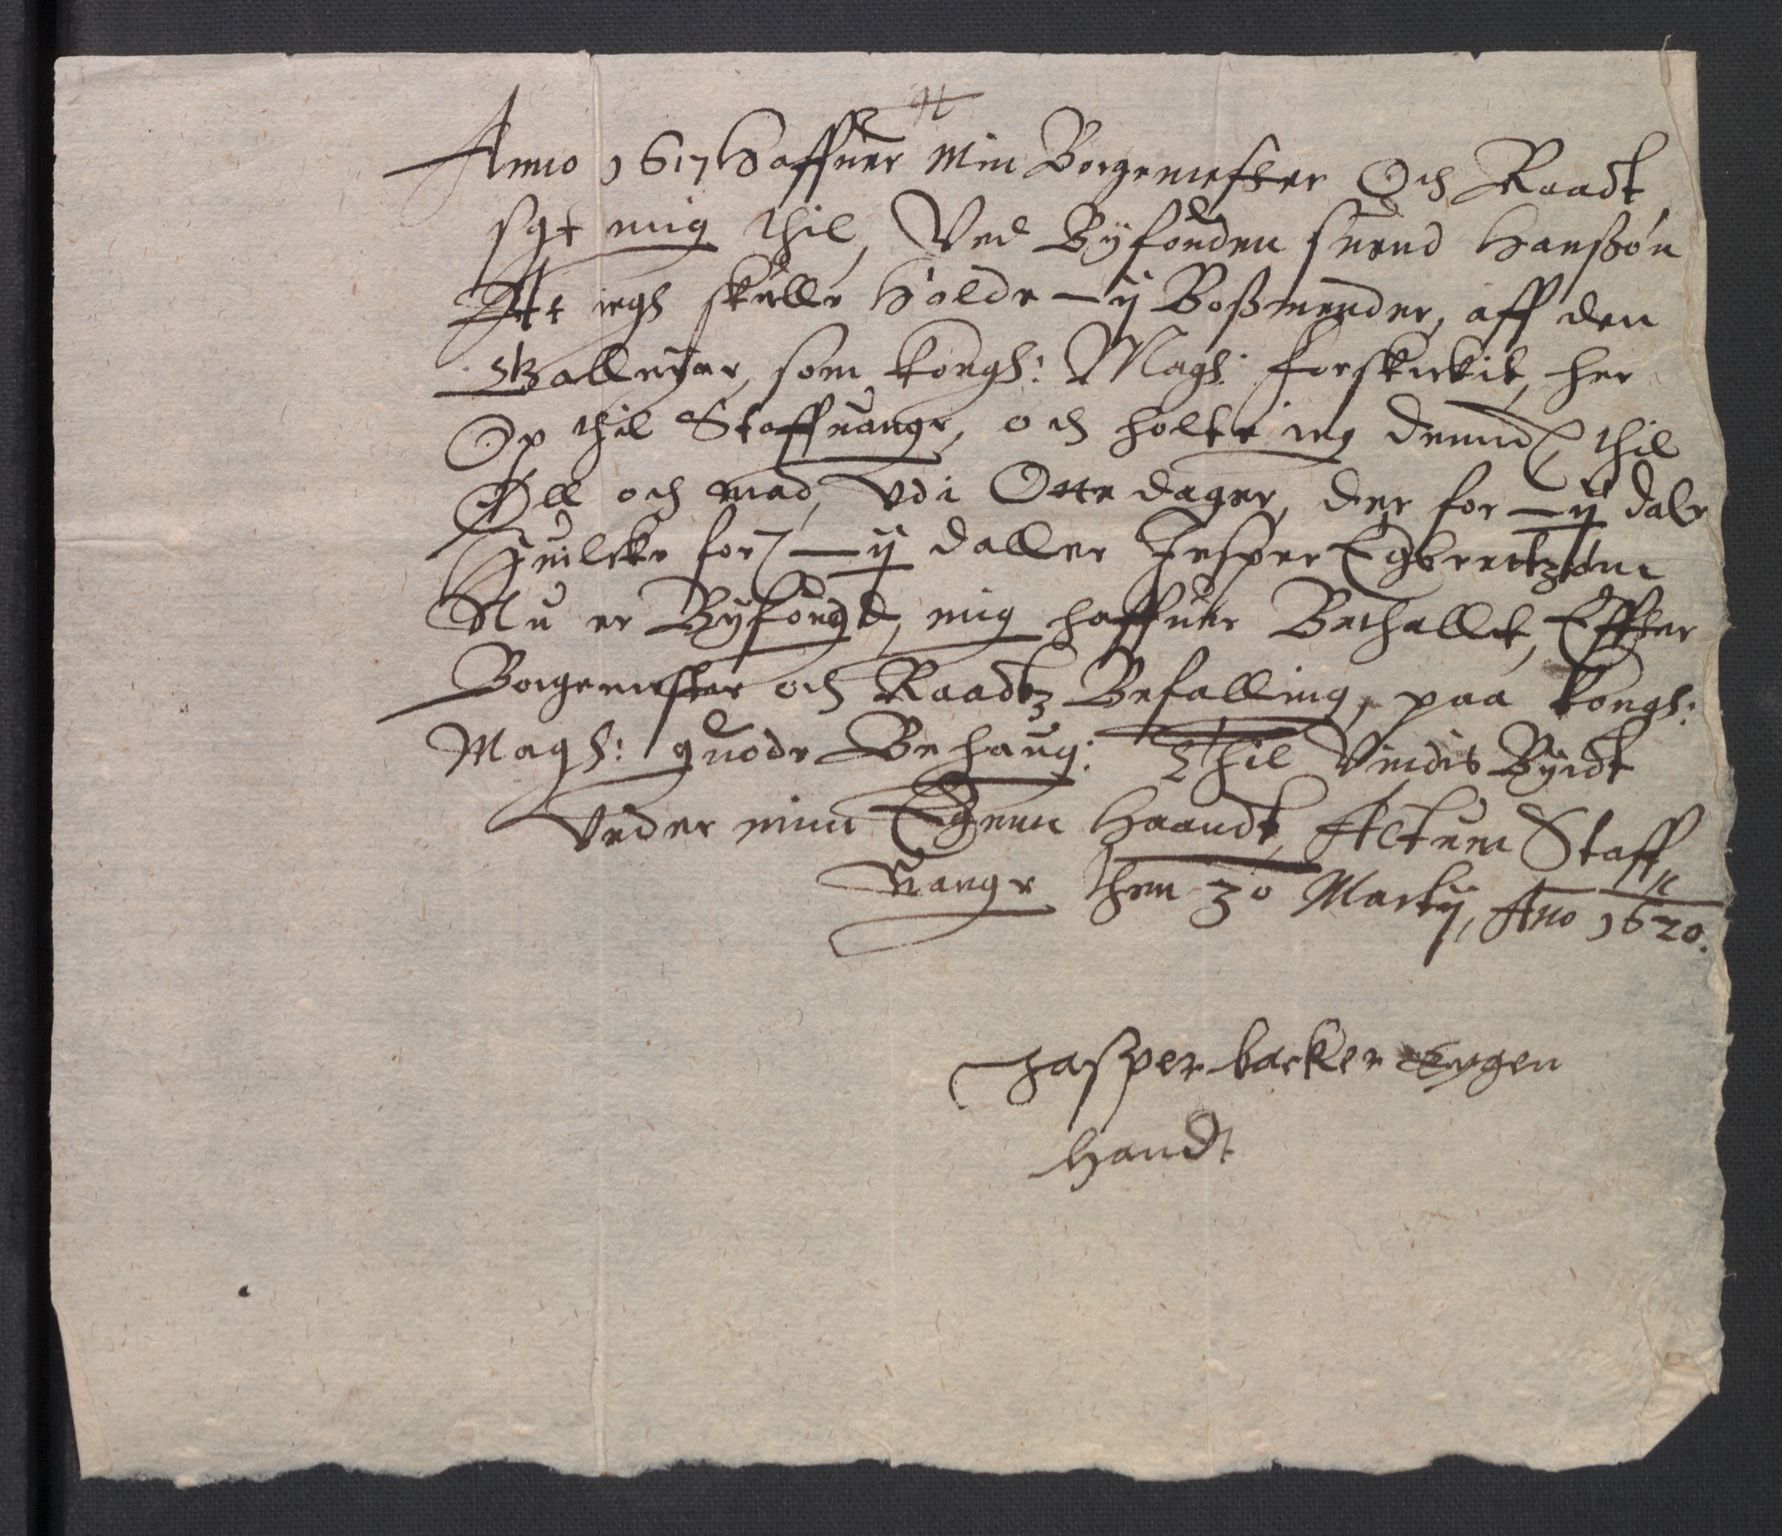 Anno 1617 Haffuer Min Borgemester Och Raadt
sgt mig thil, Ved Byfouden suend Hanssøn
Att iegh skulle Holde – ij Boßmender, aff den
Galleyer, som kongh: Magh: forskickit, her
Op thil Staffuange, och holte ieg dennd thil
Øll och mad, vdi Otte dager, der for – ij dale
Huilcke for – ij daller Jesper Egbrettzønn
Nu er Byfougd, mig haffuer Bethallet, Effter
Borgemester och Raadtz Befalling, paa kongh:
Magh: guode Behaug: Thil Vindisbyrdt
Vnder minn Egenn Haandt, Actum Staff
Uange then 30 Martij, Ano 1620.
Jasper backer Eygen
Handt